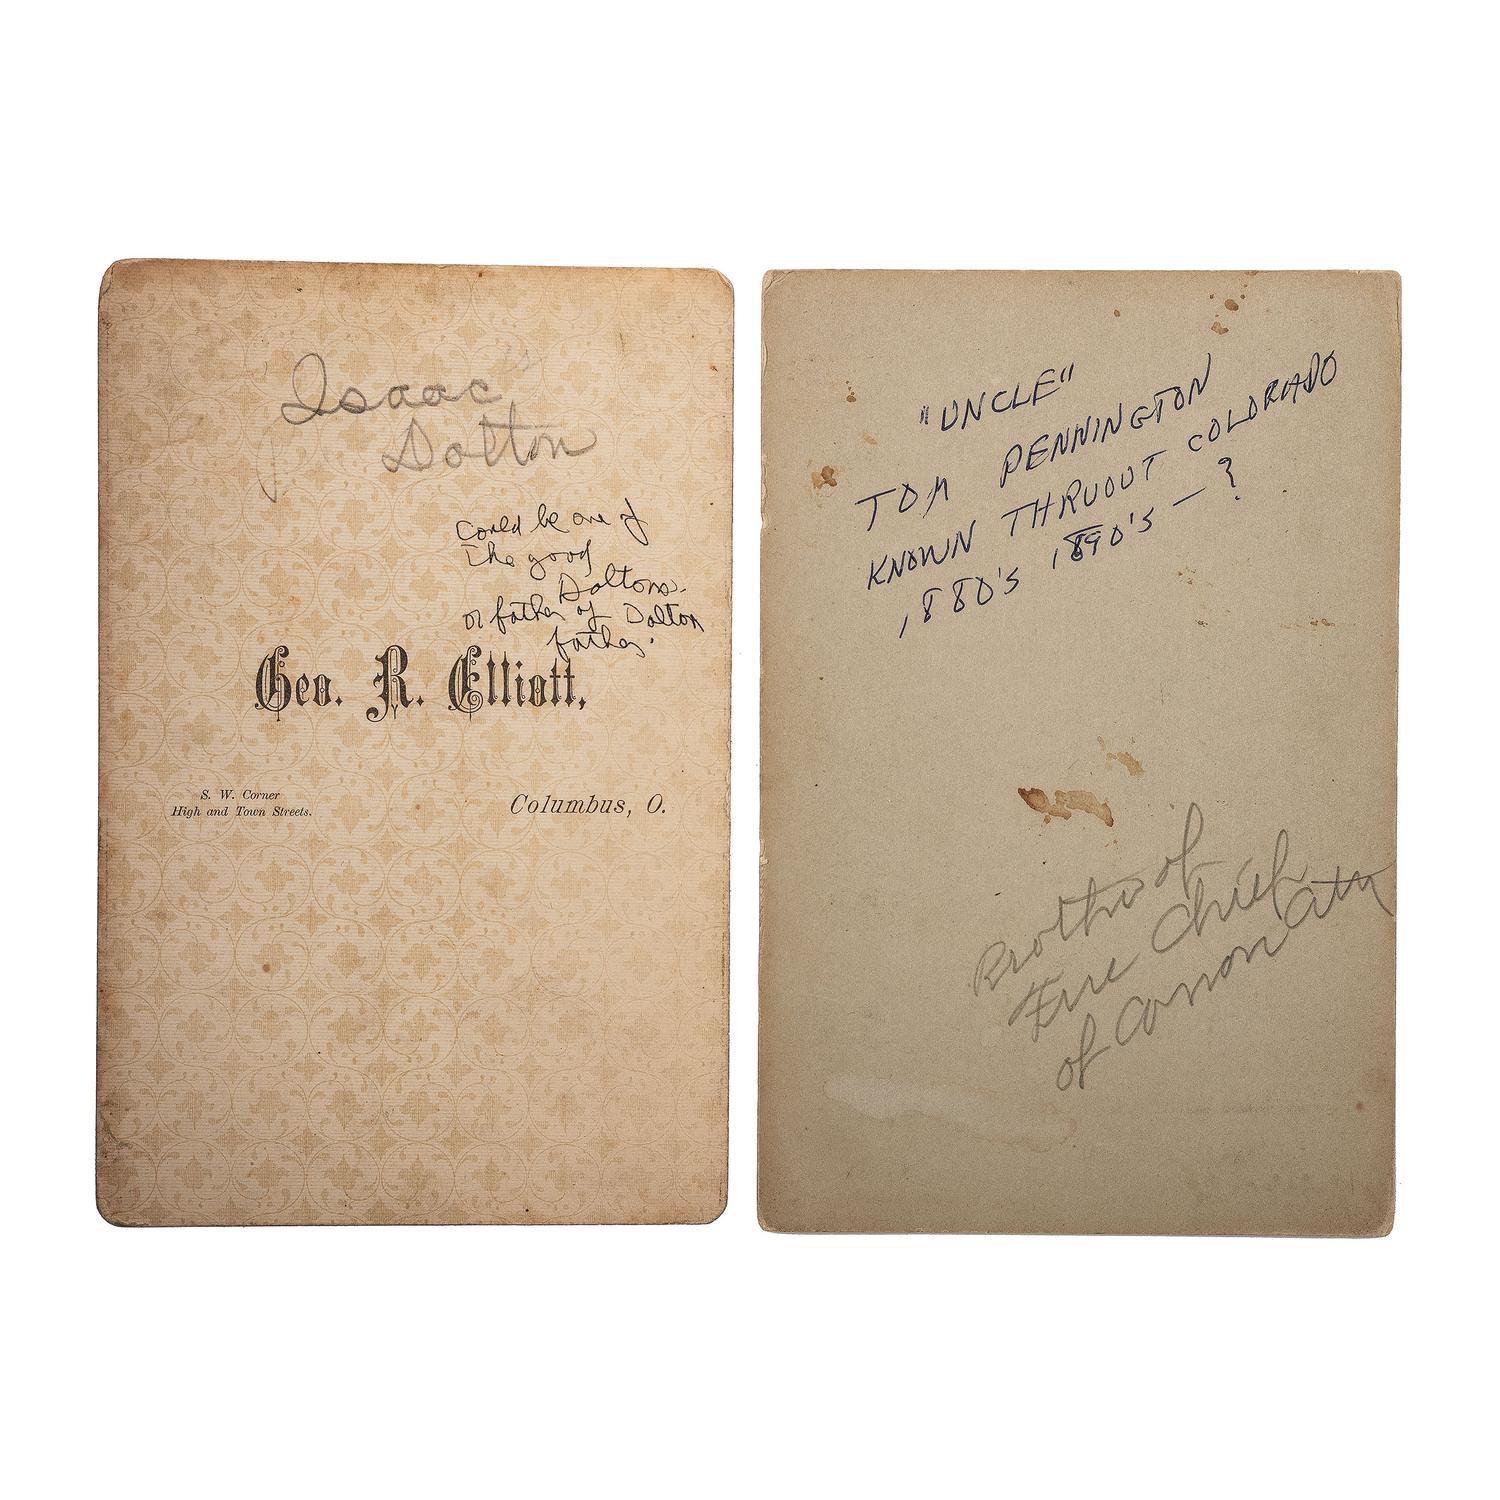 Isaac
Dalton
Could be one of
the good
Daltons.
or father of Dalton
father.
Geo. R. Elliott,
S. W. Corner
High and Town Streets.
Columbus, O.
"UNCLE"
TOM PENNINGTON
KNOWN THRUOUT COLORADO
1880's 1890's — ?
Brother of
Fire Chief
of Canon City